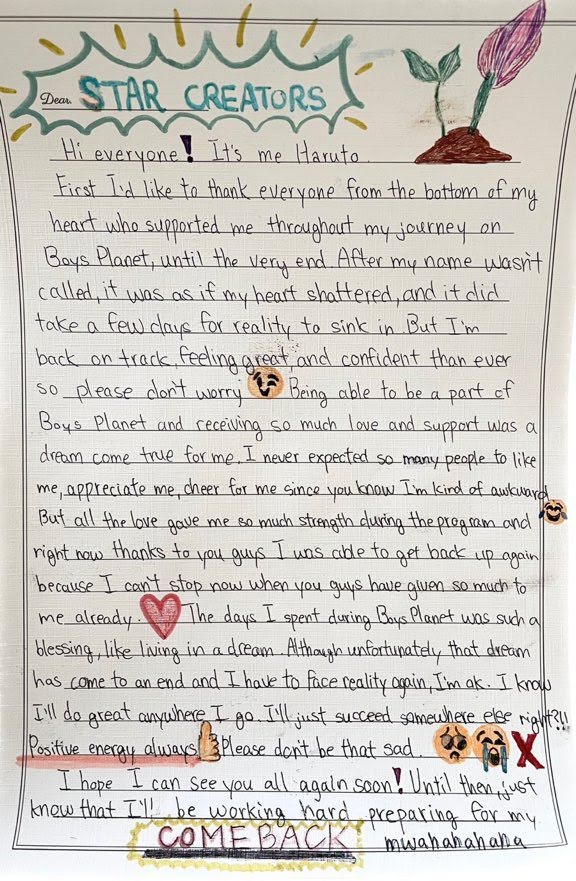 Dear. STAR CREATORS
Hi everyone! It's me Haruto.
First I'd like to thank everyone from the bottom of my
heart who supported me throughout my journey on
Boys Planet, until the very end. After my name wasn't
called, it was as if my heart shattered, and it did
take a few days for reality to sink in. But I'm
back on track, feeling great, and confident than ever
so please don't worry Being able to be a part of
Boys Planet and receiving so much love and support was a
dream come true for me. I never expected so many people to like
me, appreciate me, cheer for me since you know I'm kind of awkward
But all the love gave me so much strength during the program and
right now thanks to you guys I was able to get back up again
because I can't stop now when you guys have given so much to
me already. The days I spent during Boys Planet was such a
blessing, like living in a dream. Although unfortunately that dream
has come to an end and I have to face reality again, I'm ok. I know
I'll do great anywhere I go. I'll just succeed somewhere else right?!!
Positive energy always Please don't be that sad. X
I hope I can see you all again soon! Until then, just
know that I'll be working hard preparing for my
COMEBACK mwahahahaha